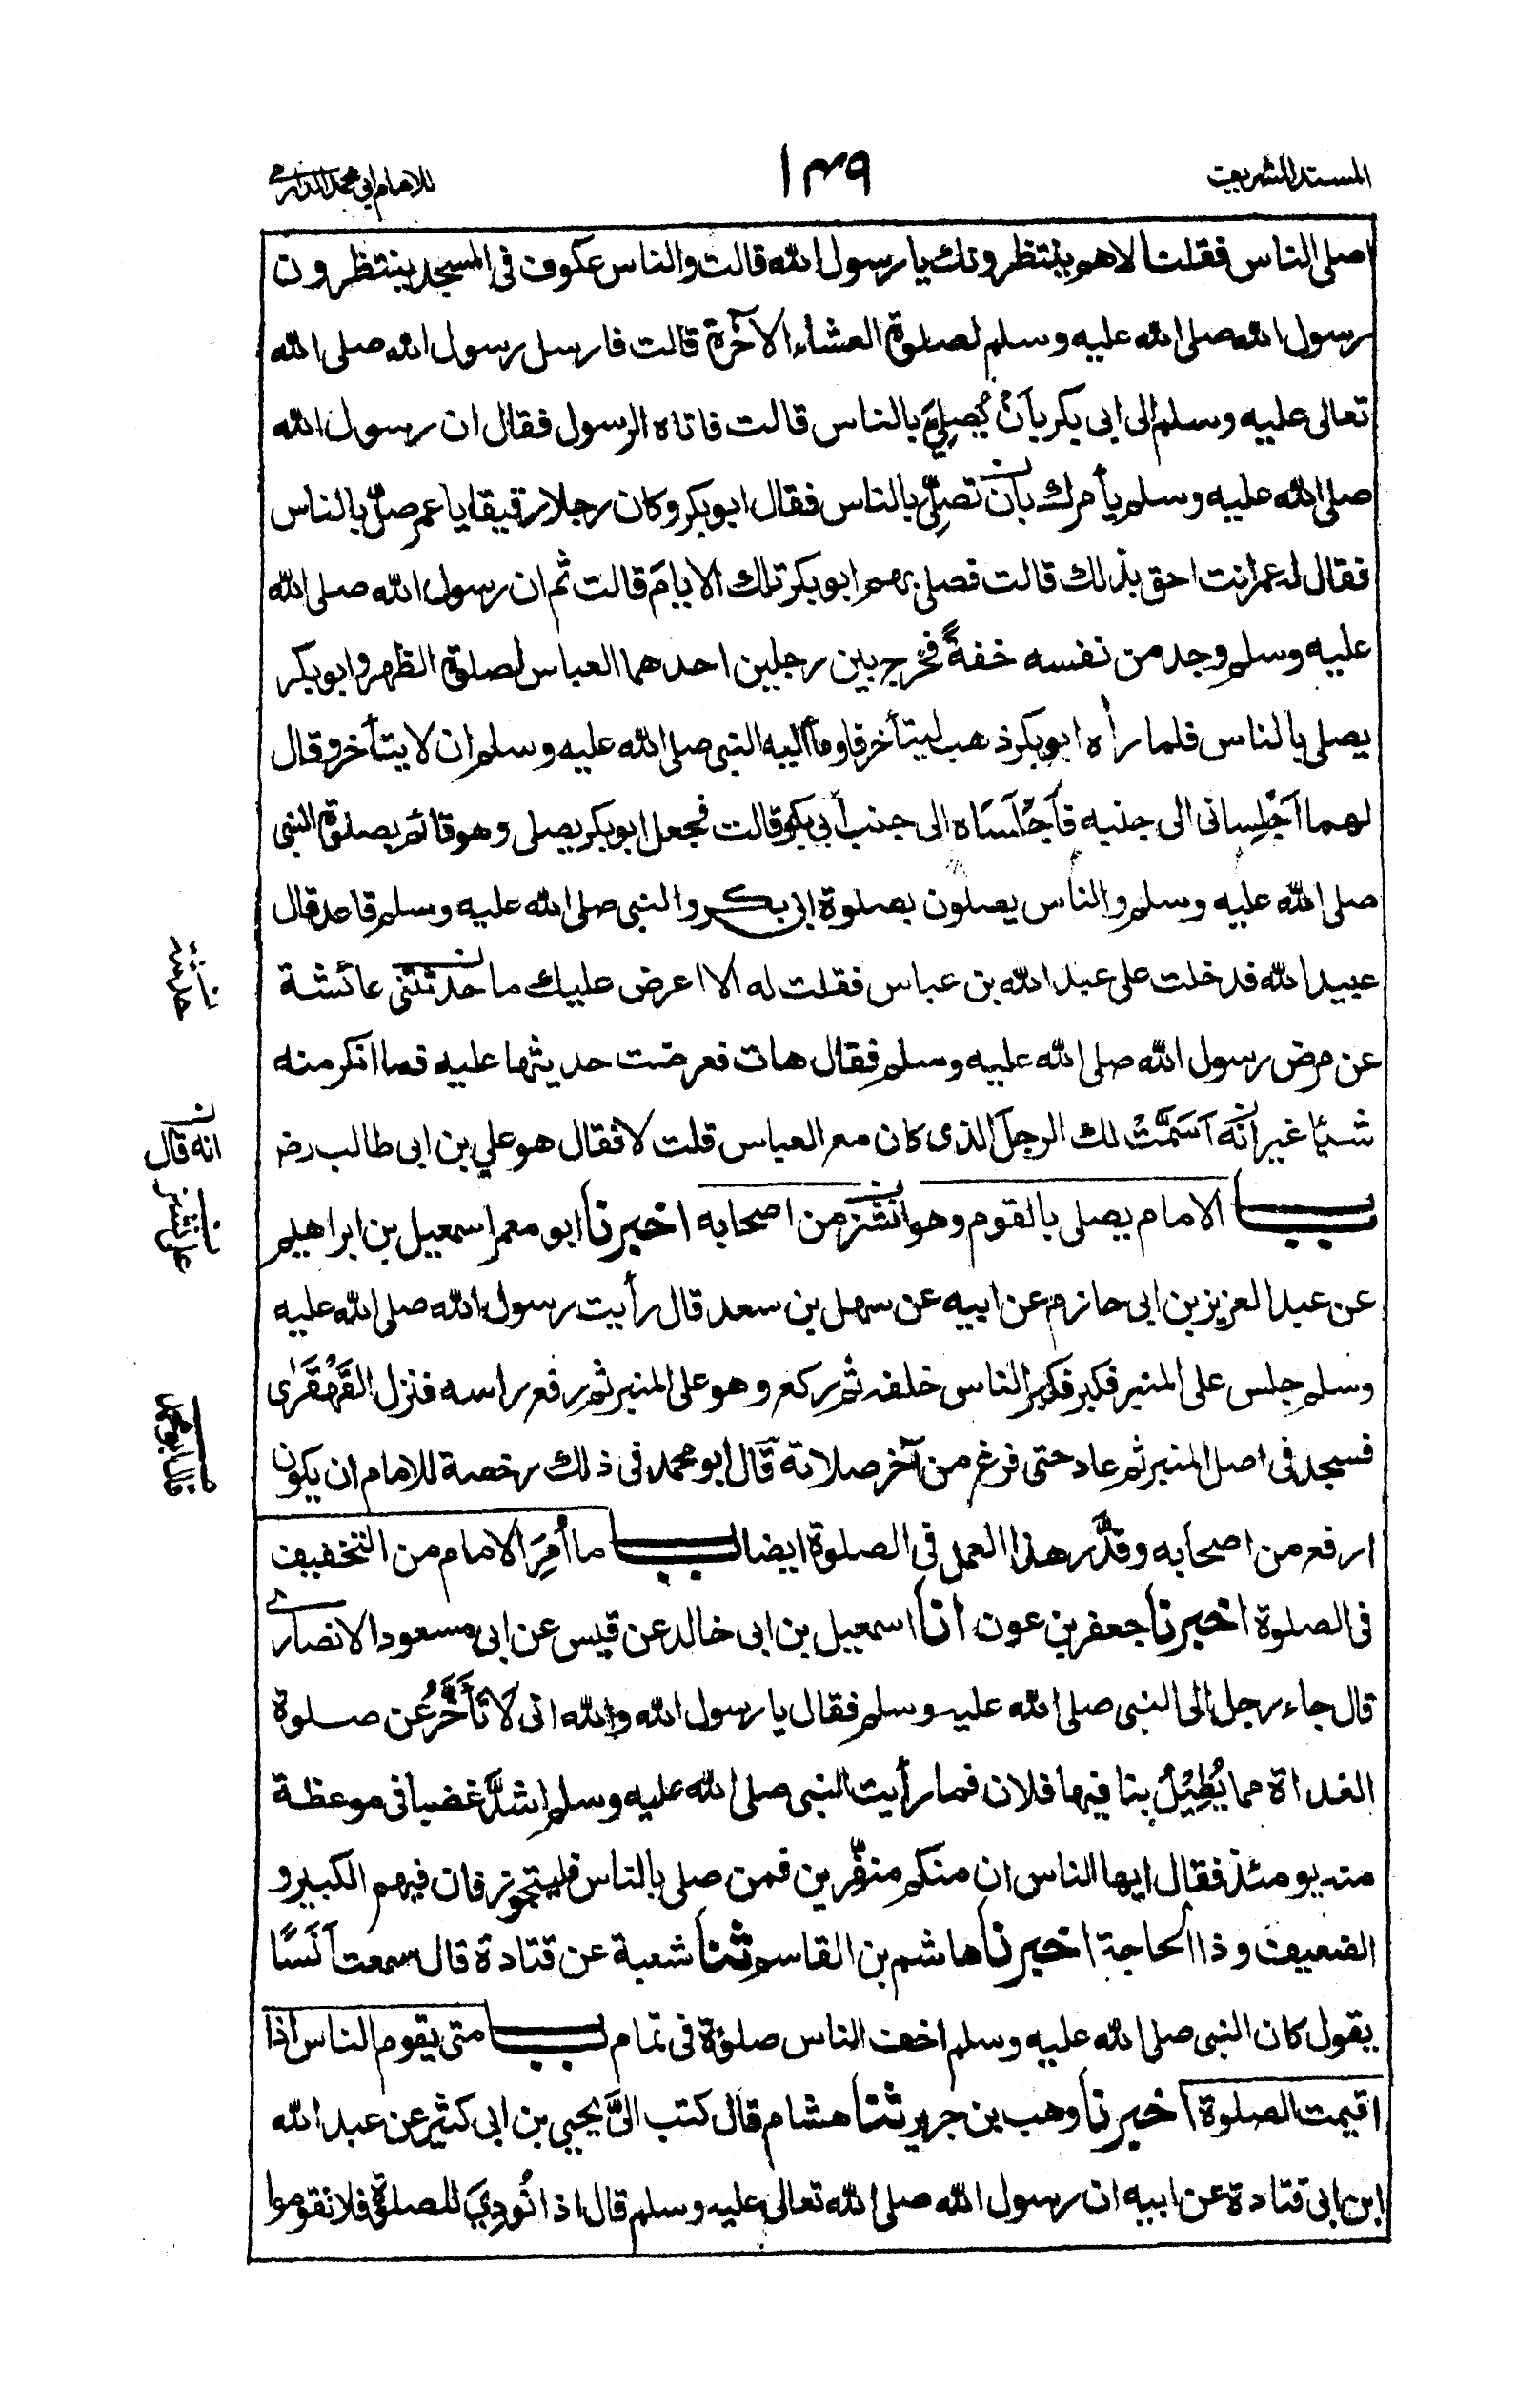 المسند الشريف
١٣٩
للامام ابي محمد الدارمي
اصلى الناس فقلنا لا هم ينتظرونك يا رسول الله قالت والناس عكوف فى المسجد ينتظرون
رسول الله صلى الله عليه وسلم لصلوة العشاء الآخرة قالت فارسل رسول الله صلى الله
تعالى عليه وسلم الى ابى بكر بأن يُصلِّيَ بالناس قالت فاتاه الرسول فقال ان رسول الله
صلى الله عليه وسلم يأمرك بأن تصلِّيَ بالناس فقال ابو بكر وكان رجلا رقيقا يا عمر صلِّ بالناس
فقال له عمر انت احق بذلك قالت فصلى بهم ابو بكر تلك الايامَ قالت ثم ان رسول الله صلى الله
عليه وسلم وجد من نفسه خفةً فخرج بين رجلين احدهما العباس لصلوة الظهر وابو بكر
يصلى بالناس فلما رأه ابو بكر ذهب ليتأخر فاومأ اليه النبى صلى الله عليه وسلم ان لا يتأخر وقال
لهما اَجْلِسانى الى جنبه فاَجْلَسَاه الى جنب أبى بكر قالت فجعل ابو بكر يصلى وهو قائم بصلوة النبى
صلى الله عليه وسلم والناس يصلون بصلوة ابى بكر والنبى صلى الله عليه وسلم قاعد قال
عبيد الله فدخلت على عبد الله بن عباس فقلت له الا اعرض عليك ما حدثتنى عائشة
عن مرض رسول الله صلى الله عليه وسلم فقال هات فعرضت حديثها عليه فما انكر منه
شيئا غير أنّه اَسَمَّتْ لك الرجلَ الذى كان مع العباس قلت لا فقال هو علي بن ابى طالب رضـ
انه قال
باب الامام يصلى بالقوم وهو انشز من اصحابه اخبرنا ابو معمر اسمعيل بن ابراهيم
عن عبد العزيز بن ابى حازم عن ابيه عن سهل بن سعد قال رأيت رسول الله صلى الله عليه
وسلم جلس على المنبر فكبر فكبر الناس خلفه ثم ركع وهو على المنبر ثم رفع راسه فنزل القَهْقَرٰى
فسجد فى اصل المنبر ثم عاد حتى فرغ من آخر صلاته قال ابو محمد فى ذلك رخصة للامام ان يكون
ارفع من اصحابه وقدَّر هذا العمل فى الصلوة ايضا باب ما أُمِرَ الامام من التخفيف
فى الصلوة اخبرنا جعفر بن عون انا اسمعيل بن ابى خالد عن قيس عن ابى مسعود الانصارى
قال جاء رجل الى النبى صلى الله عليه وسلم فقال يا رسول الله والله انى لَاَتَأَخَّرُ عن صلوة
الغداة مما يُطِيْلُ بنا فيها فلان فما رأيت النبى صلى الله عليه وسلم اشدَّ غضبا فى موعظة
منه يومئذ فقال ايها الناس ان منكم منفِّرين فمن صلى بالناس فليتجوز فان فيهم الكبير و
الضعيف وذا الحاجة اخبرنا هاشم بن القاسم ثنا شعبة عن قتادة قال سمعت اَنَسًا
يقول كان النبى صلى الله عليه وسلم اخف الناس صلوة فى تمام باب متى يقوم الناس اذا
اقيمت الصلوة اخبرنا وهب بن جرير ثنا هشام قال كتب الىَّ يحيى بن ابى كثير عن عبد الله
ابن ابى قتادة عن ابيه ان رسول الله صلى الله تعالى عليه وسلم قال اذا نُودِيَ للصلوة فلا تقوموا